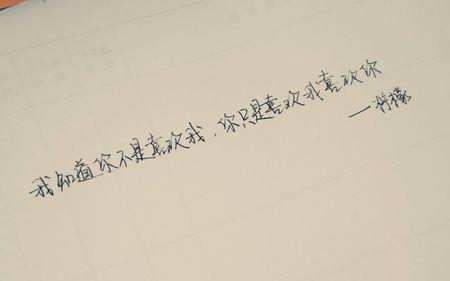 我知道你不是喜欢我，你只是喜欢我喜欢你
——柠檬